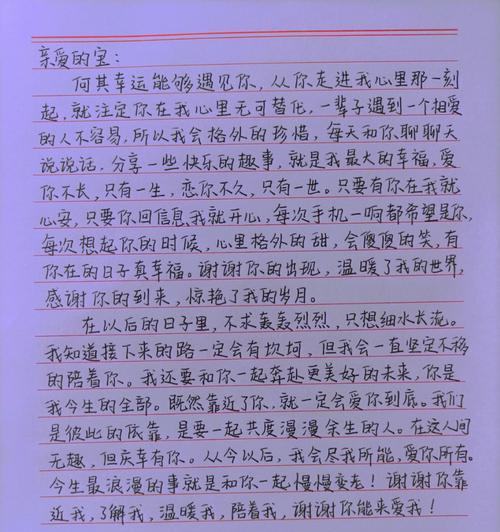 亲爱的宝：
何其幸运能够遇见你，从你走进我心里那一刻
起，就注定你在我心里无可替代，一辈子遇到一个相爱
的人不容易，所以我会格外的珍惜，每天和你聊聊天
说说话，分享一些快乐的趣事，就是我最大的幸福，爱
你不长，只有一生，恋你不久，只有一世。只要有你在我就
心安，只要你回信息我就开心，每次手机一响都希望是你，
每次想起你的时候，心里格外的甜，会傻傻的笑，有
你在的日子真幸福。谢谢你的出现，温暖了我的世界，
感谢你的到来，惊艳了我的岁月。
在以后的日子里，不求轰轰烈烈，只想细水长流。
我知道接下来的路一定会有坎坷，但我会一直坚定不移
的陪着你。我还要和你一起奔赴更美好的未来，你是
我今生的全部。既然靠近了你，就一定会爱你到底。我们
是彼此的依靠，是要一起共度漫漫余生的人。在这人间
无趣，但庆幸有你。从今以后，我会尽我所能，爱你所有。
今生最浪漫的事就是和你一起慢慢变老！谢谢你靠
近我，了解我，温暖我，陪着我，谢谢你能来爱我！